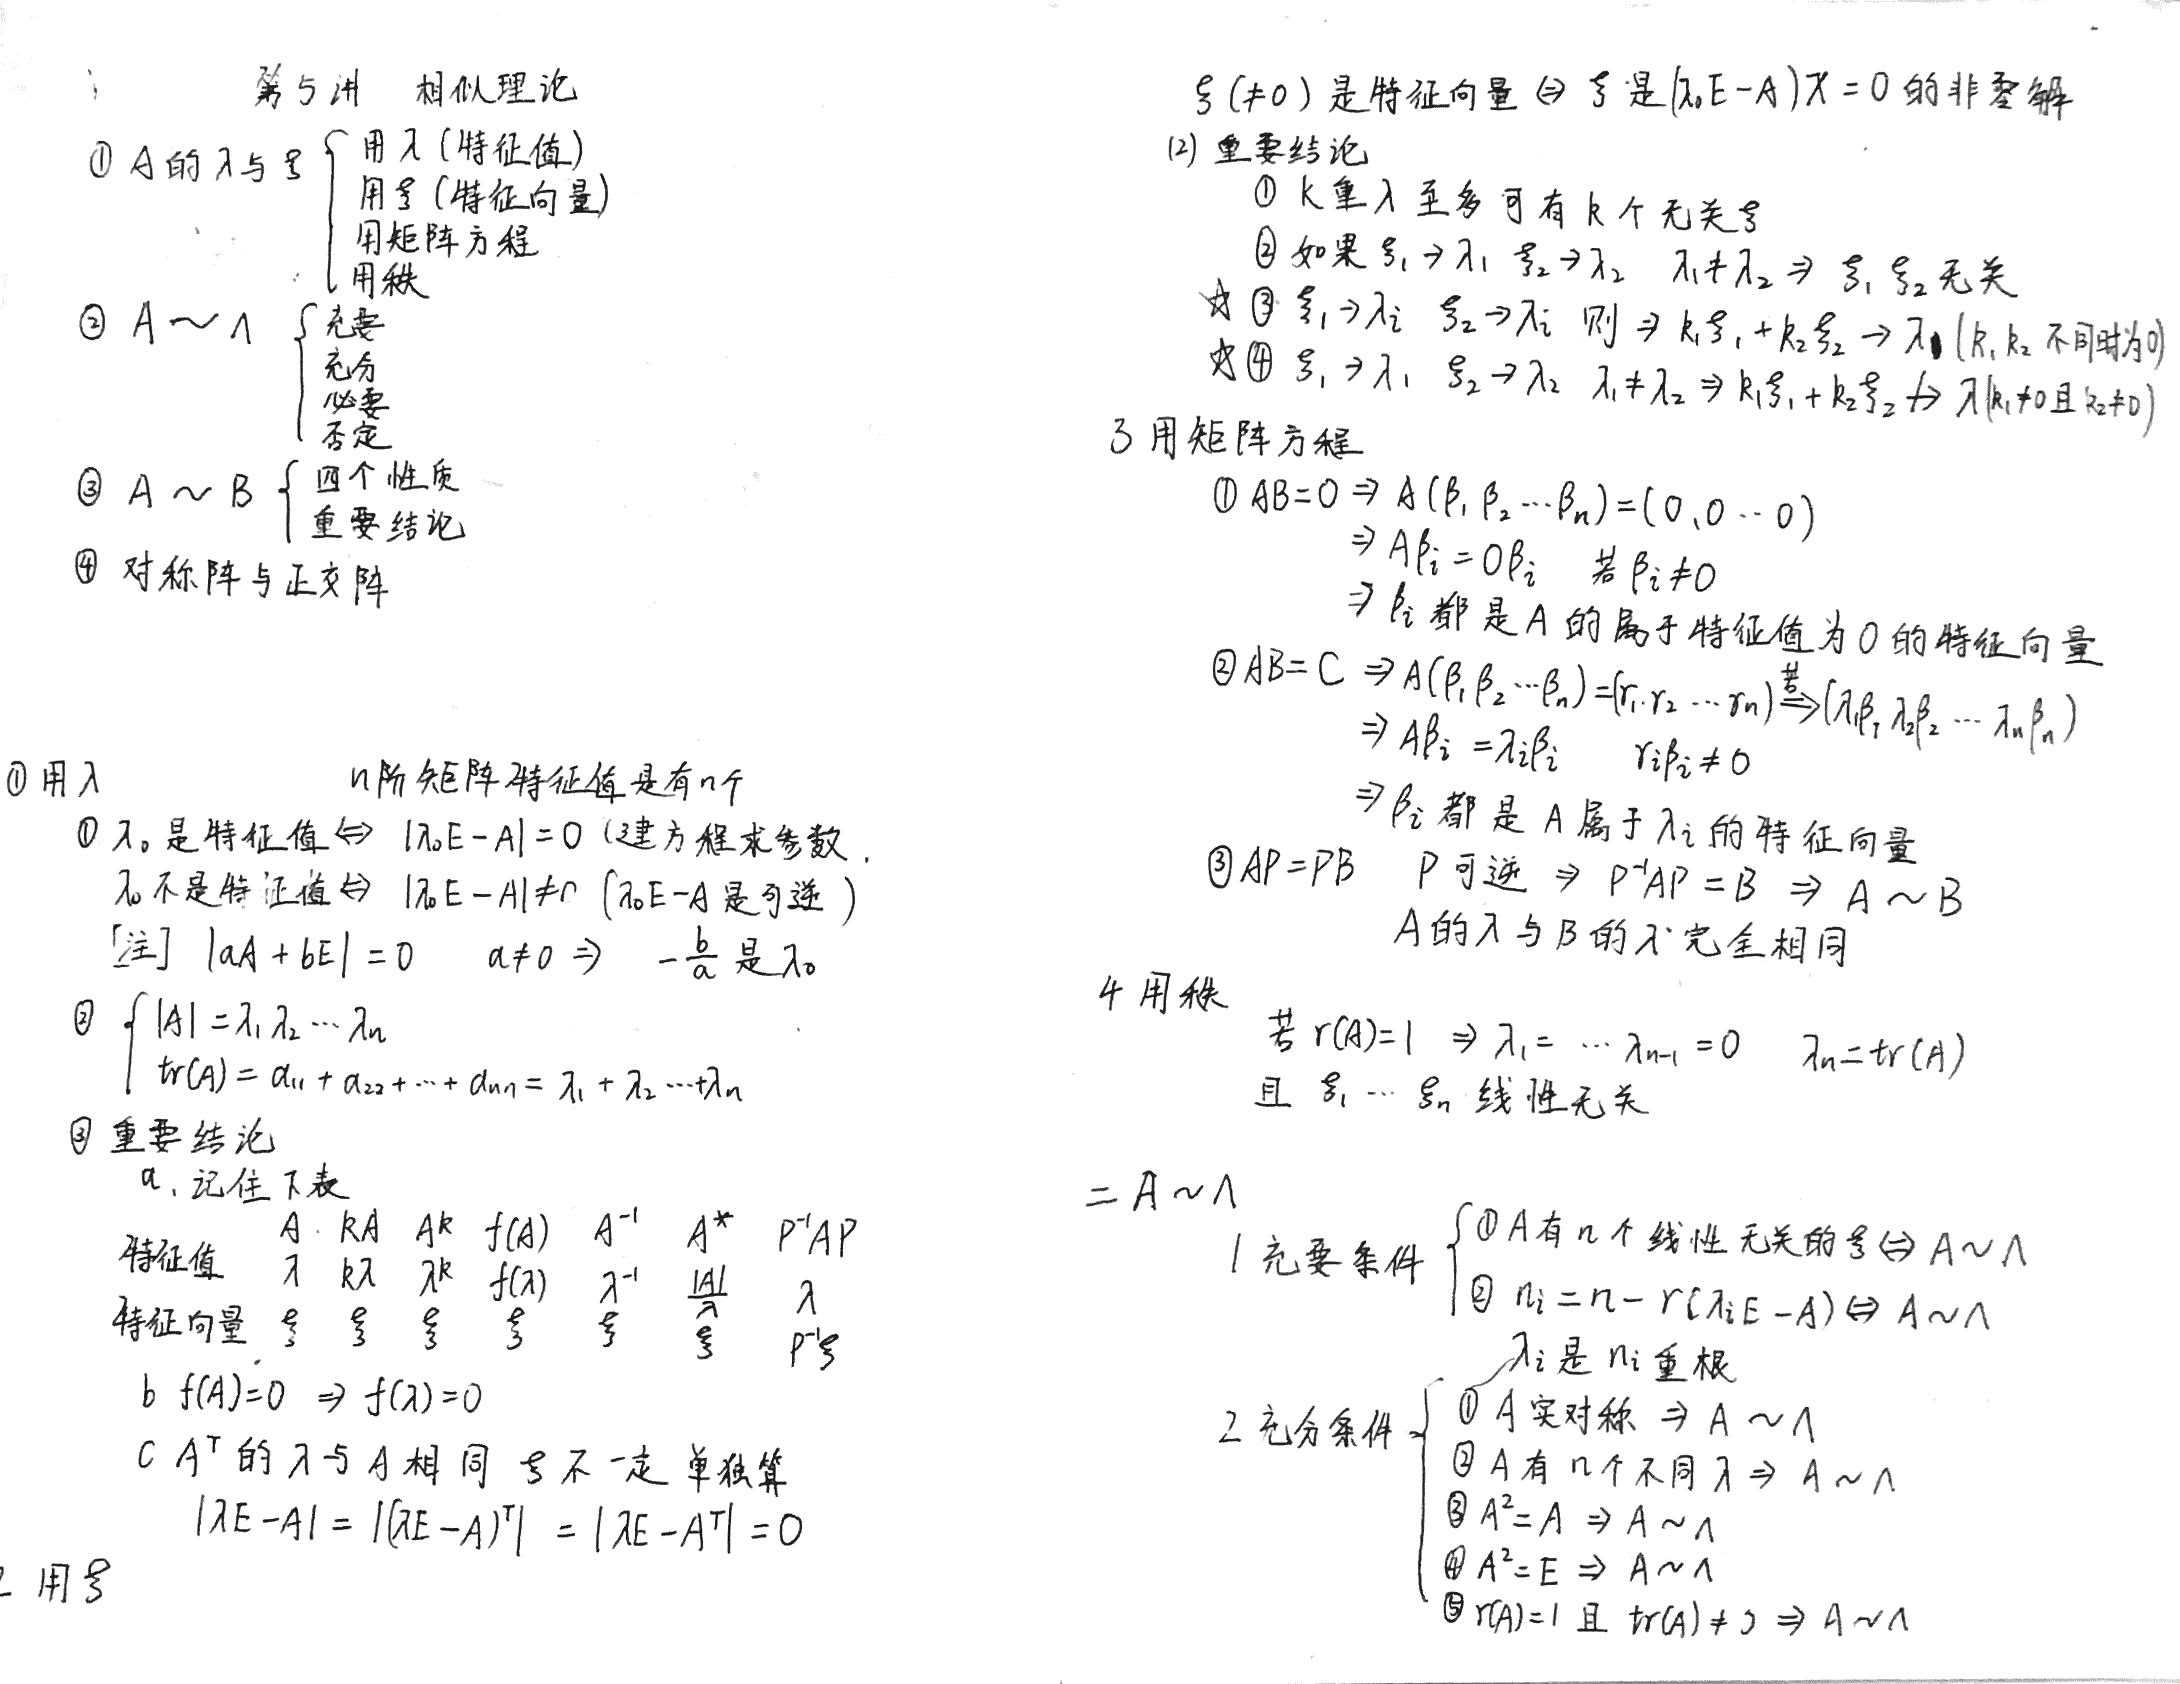 第5讲 相似理论
① A的λ与ξ
用λ(特征值)
用ξ(特征向量)
用矩阵方程
用秩
② A～Λ
充要
充分
必要
否定
③ A～B
四个性质
重要结论
④ 对称阵与正交阵
① 用λ n阶矩阵特征值是有n个
① λ₀是特征值⇔ |λ₀E-A|=0 (建方程求参数.
λ₀不是特征值⇔ |λ₀E-A|≠0 (λ₀E-A是可逆)
[注] |aA+bE|=0 a≠0 ⇒ -b/a 是λ₀
② |A|=λ₁λ₂…λn
tr(A)=a₁₁+a₂₂+…+ann=λ₁+λ₂…+λn
③ 重要结论
a、记住下表
A kA Aᵏ f(A) A⁻¹ A* P⁻¹AP
特征值 λ kλ λᵏ f(λ) λ⁻¹ |A|/λ λ
特征向量 ξ ξ ξ ξ ξ ξ P⁻¹ξ
b f(A)=0 ⇒ f(λ)=0
c Aᵀ的λ与A相同 ξ不一定 单独算
|λE-A| = |(λE-A)ᵀ| = |λE-Aᵀ|=0
2 用ξ
ξ(≠0)是特征向量⇔ ξ是(λ₀E-A)X=0的非零解
(2) 重要结论
① k重λ至多可有k个无关ξ
② 如果ξ₁→λ₁ ξ₂→λ₂ λ₁≠λ₂ ⇒ ξ₁ ξ₂无关
☆③ ξ₁→λi ξ₂→λi 则 ⇒ k₁ξ₁+k₂ξ₂→λ (k₁k₂不同时为0)
☆④ ξ₁→λ₁ ξ₂→λ₂ λ₁≠λ₂ ⇒ k₁ξ₁+k₂ξ₂↛λ(k₁≠0且k₂≠0)
3 用矩阵方程
① AB=0 ⇒ A(β₁β₂…βn)=(0,0…0)
⇒ Aβi=0βi 若βi≠0
⇒ βi都是A的属于特征值为0的特征向量
② AB=C ⇒ A(β₁β₂…βn)=(γ₁.γ₂…γn) 若⇒ (λ₁β₁λ₂β₂…λnβn)
⇒ Aβi=λiβi γiβi≠0
⇒ βi都是A属于λi的特征向量
③ AP=PB P可逆 ⇒ P⁻¹AP=B ⇒ A～B
A的λ与B的λ完全相同
4 用秩
若r(A)=1 ⇒ λ₁=…λn-1=0 λn=tr(A)
且 ξ₁…ξn线性无关
二 A～Λ
1 充要条件
① A有n个线性无关的ξ⇔ A～Λ
② ni=n-r(λiE-A)⇔ A～Λ
λi是ni重根
2 充分条件
① A实对称 ⇒ A～Λ
② A有n个不同λ ⇒ A～Λ
③ A²=A ⇒ A～Λ
④ A²=E ⇒ A～Λ
⑤ r(A)=1且 tr(A)≠0 ⇒ A～Λ